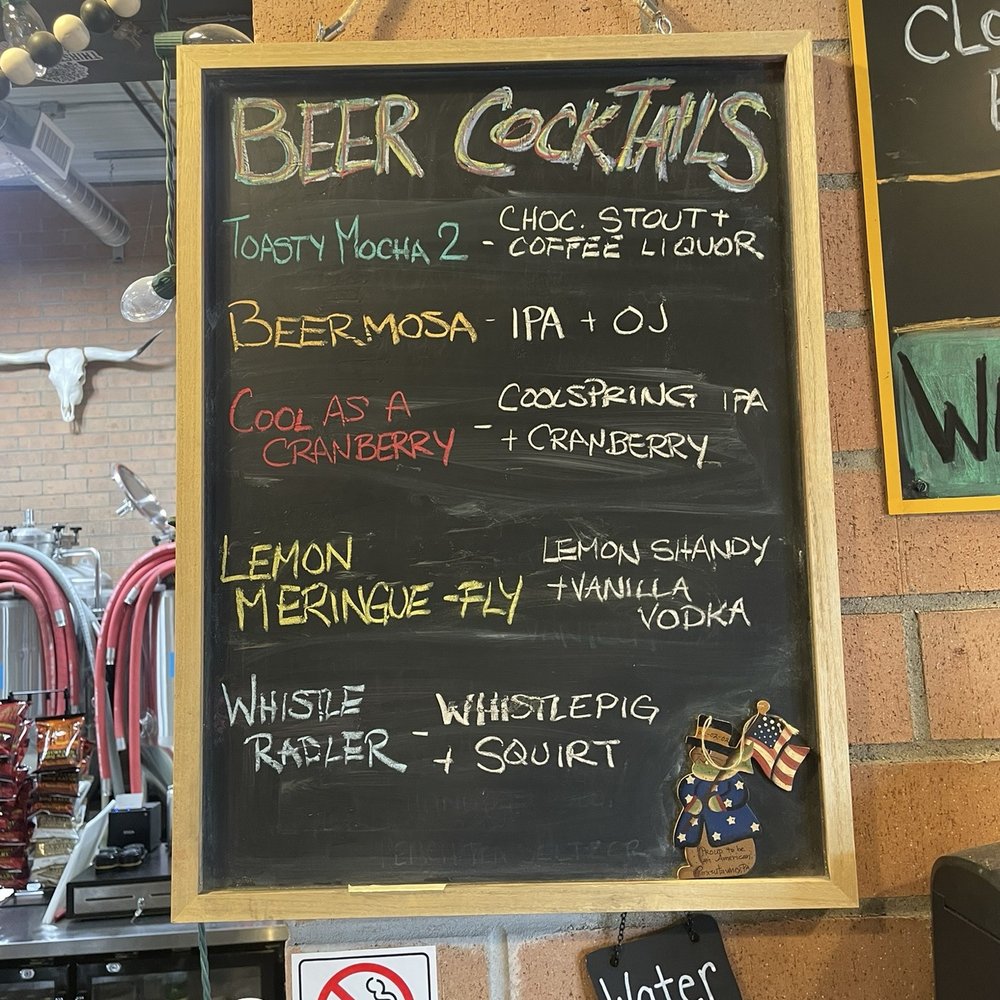 BEER COCKTAILS
TOASTY MOCHA 2 - CHOC. STOUT +
COFFEE LIQUOR
BEERMOSA - IPA + OJ
COOL AS A
CRANBERRY - COOLSPRING IPA
+ CRANBERRY
LEMON
MERINGUE-FLY LEMON SHANDY
+VANILLA
VODKA
WHISTLE
RADLER - WHISTLEPIG
+ SQUIRT
Proud to be
an American
CLO
W
Water